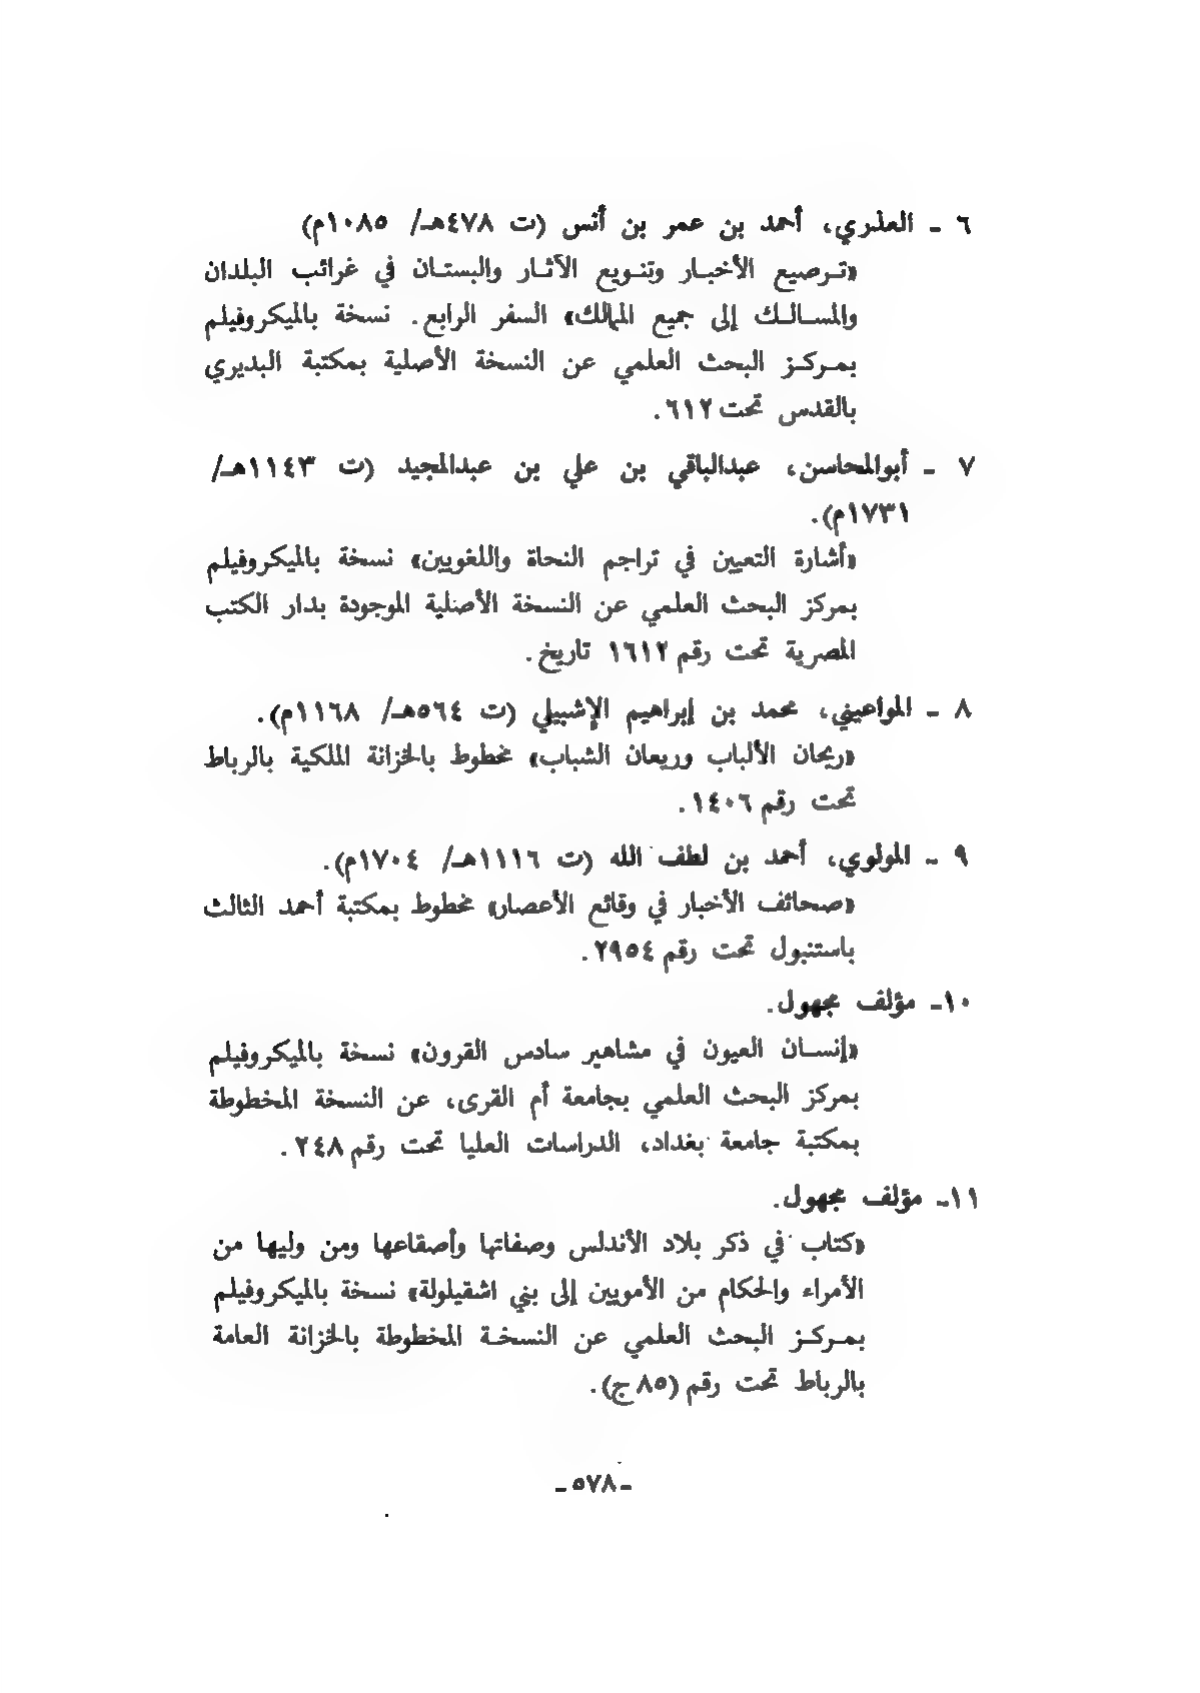 ٦ ـ العذري، أحمد بن عمر بن أنس (ت ٤٧٨هـ/ ١٠٨٥م)
«ترصيع الأخبار وتنويع الآثار والبستان في غرائب البلدان
والمسالك إلى جميع الممالك» السفر الرابع. نسخة بالميكروفيلم
بمركز البحث العلمي عن النسخة الأصلية بمكتبة البديري
بالقدس تحت ٦١٢.
٧ ـ أبوالمحاسن، عبدالباقي بن علي بن عبدالمجيد (ت ١١٤٣هـ/
١٧٣١م).
«أشارة التعيين في تراجم النحاة واللغويين» نسخة بالميكروفيلم
بمركز البحث العلمي عن النسخة الأصلية الموجودة بدار الكتب
المصرية تحت رقم ١٦١٢ تاريخ.
٨ ـ المواعيني، محمد بن إبراهيم الإشبيلي (ت ٥٦٤هـ/ ١١٦٨م).
«ريحان الألباب وريعان الشباب» مخطوط بالخزانة الملكية بالرباط
تحت رقم ١٤٠٦.
٩ ـ المولوي، أحمد بن لطف الله (ت ١١١٦هـ/ ١٧٠٤م).
«صحائف الأخبار في وقائع الأعصار» مخطوط بمكتبة أحمد الثالث
باستنبول تحت رقم ٢٩٥٤.
١٠ـ مؤلف مجهول.
«إنسان العيون في مشاهير سادس القرون» نسخة بالميكروفيلم
بمركز البحث العلمي بجامعة أم القرى، عن النسخة المخطوطة
بمكتبة جامعة بغداد، الدراسات العليا تحت رقم ٢٤٨.
١١ـ مؤلف مجهول.
«كتاب في ذكر بلاد الأندلس وصفاتها وأصقاعها ومن وليها من
الأمراء والحكام من الأمويين إلى بني اشقيلولة» نسخة بالميكروفيلم
بمركز البحث العلمي عن النسخة المخطوطة بالخزانة العامة
بالرباط تحت رقم (٨٥ ج).
ـ ٥٧٨ ـ